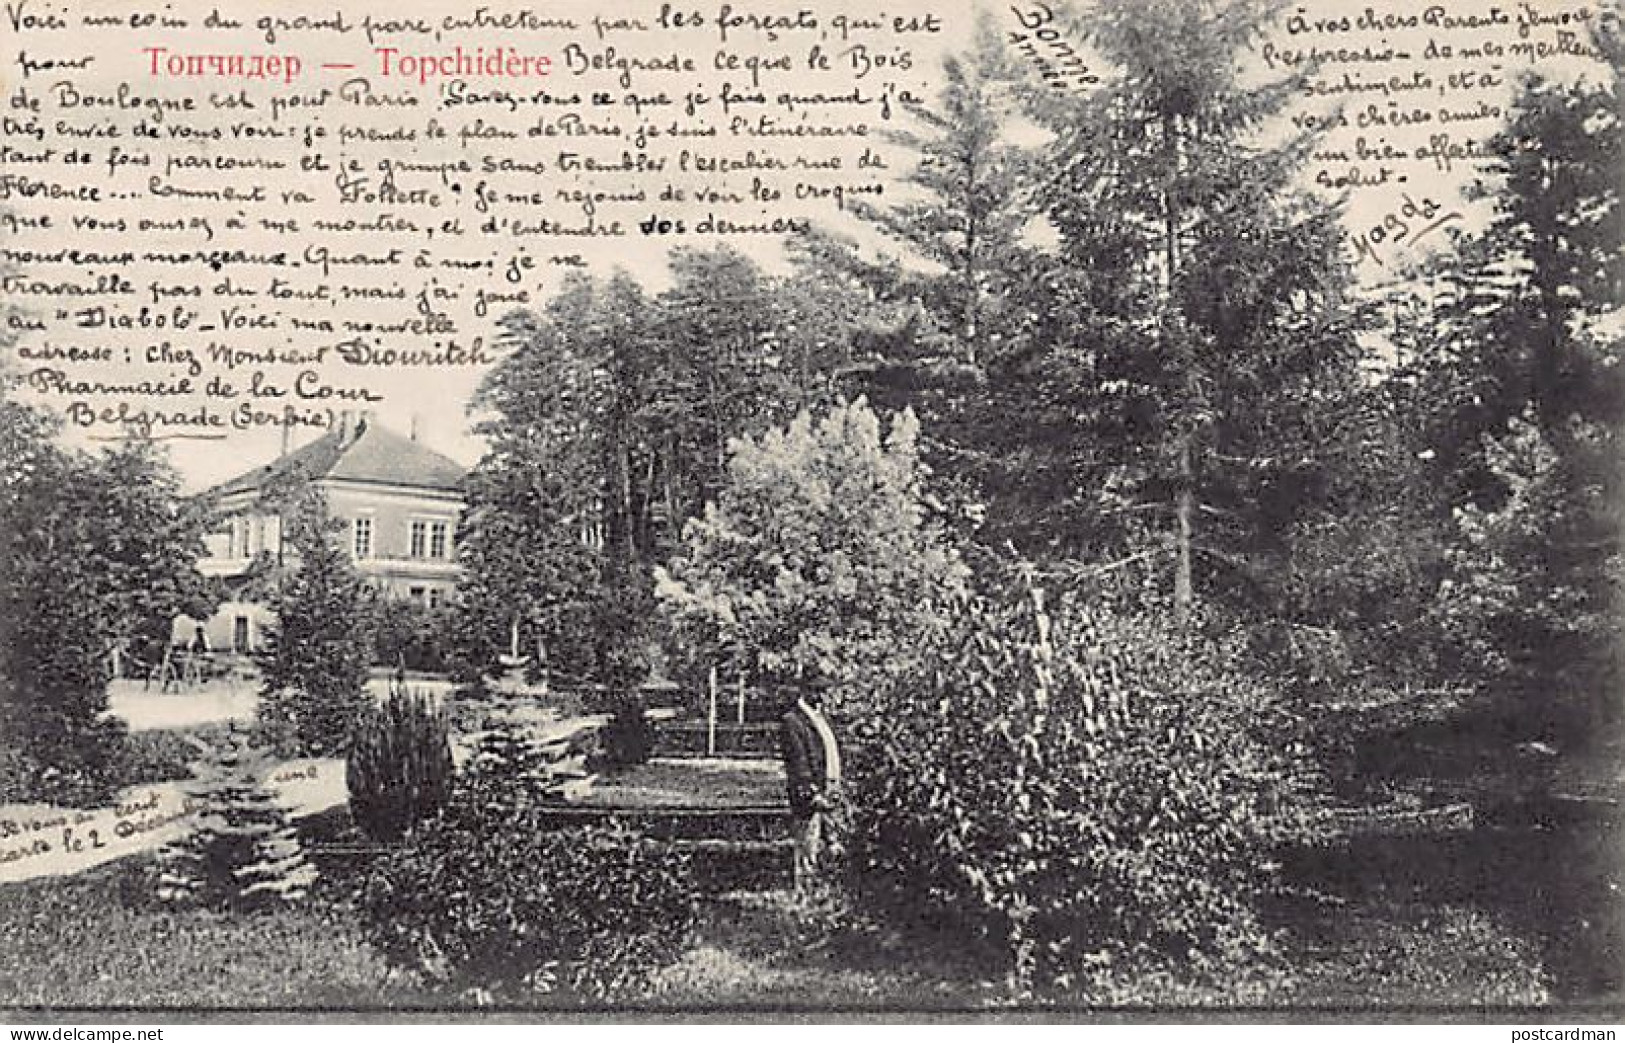 Voici un coin du grand parc, entretenu par les forçats, qui est
pour Топчидер — Topchidère Belgrade ce que le Bois
de Boulogne est pour Paris! Savez-vous ce que je fais quand j'ai
très envie de vous voir: je prends le plan de Paris, je suis l'itinéraire
tant de fois parcouru et je grimpe sans trembler l'escalier rue de
Florence.... Comment va Follette? Je me réjouis de voir les croquis
que vous aurez à me montrer, et d'entendre vos derniers
nouveaux morceaux. Quant à moi je ne
travaille pas du tout, mais j'ai joué
au "Diabolo" - Voici ma nouvelle
adresse: Chez Monsieur Diouritch
Pharmacie de la Cour
Belgrade (Serbie)
Bonne
Année
à vos chers Parents j'envoie
l'expression de mes meilleurs
sentiments, et à
vous chères amies,
un bien affectueux
salut.
Magda
Je vous ai écrit une
carte le 2 Décembre
postcardman